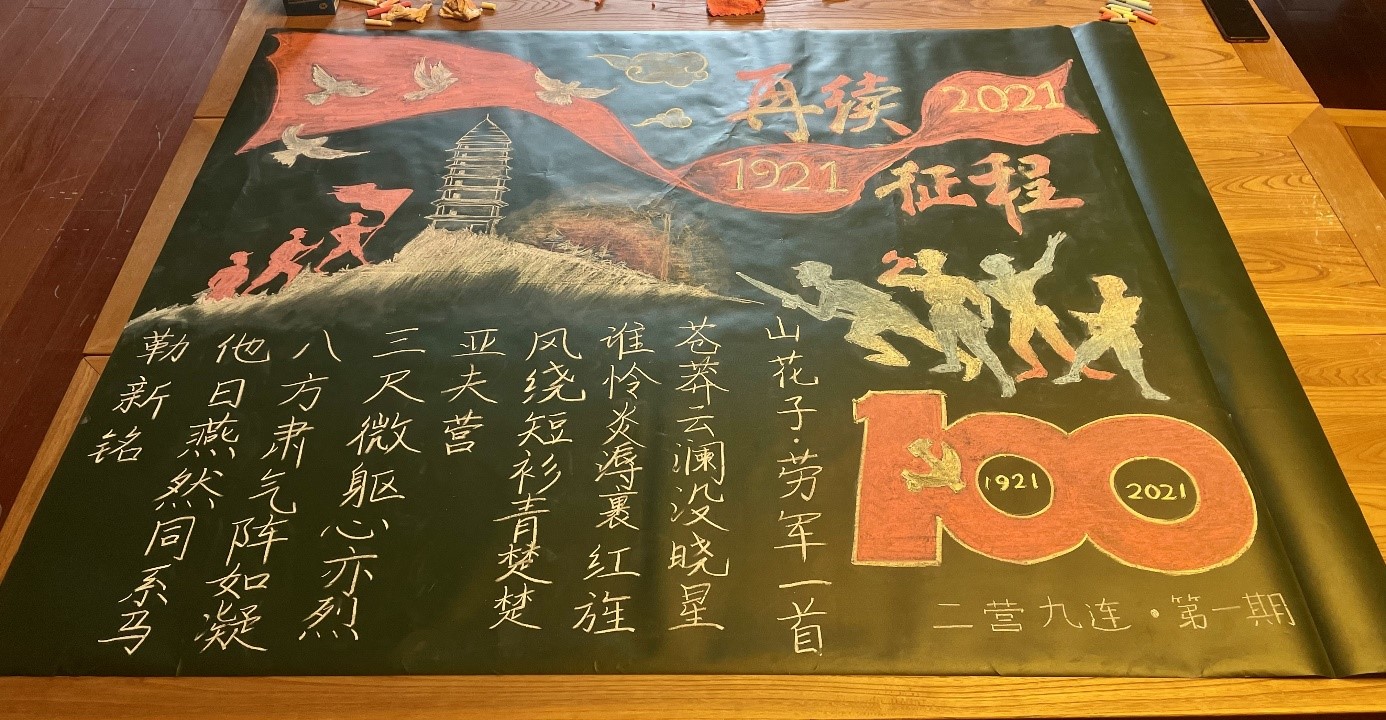 再续
2021
1921
征程
山花子·劳军一首
苍莽云澜没晓星
谁怜炎溽裹红旌
风绕短衫青楚楚
亚夫营
三尺微躯心亦烈
八方肃气阵如凝
他日燕然同系马
勒新铭
100
1921
2021
二营九连·第一期